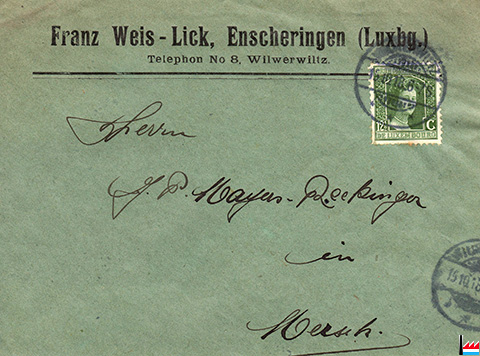 Franz Weis-Lick, Enscheringen (Luxbg.)
Telephon No 8, Wilwerwiltz.
12½ C
DE LUXEMBOURG
Herrn
J. P. Mayers-
in
Mersch.